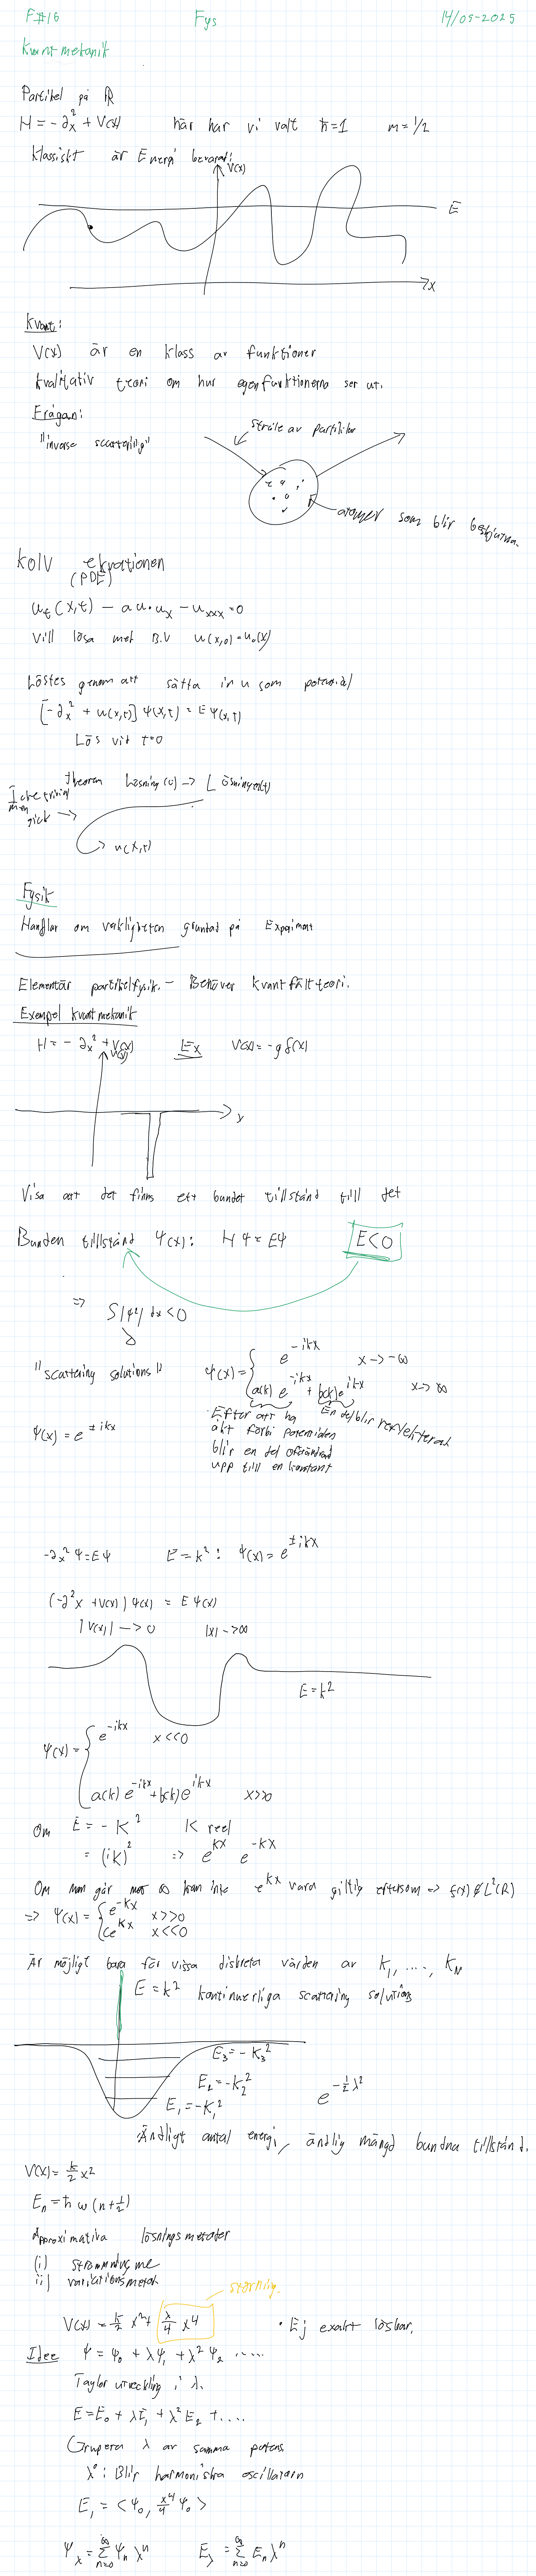 F#16
Fys
14/05-2025
Kvantmekanik
Partikel på ℝ
H = -∂ₓ² + V(x) här har vi valt ħ=1 m=1/2
Klassiskt är Energi bevarad:
V(x)
E
x
Kvant:
V(x) är en klass av funktioner
Kvalitativ teori om hur egenfunktionerna ser ut.
Frågan:
"inverse scattering"
Stråle av partiklar
atomer som blir beskjutna.
KdV ekvationen
(PDE)
uₜ(x,t) - au·uₓ - uₓₓₓ = 0
Vill lösa med B.V u(x,0) = u₀(x)
Löstes genom att sätta in u som potential
[-∂ₓ² + u(x,t)] ψ(x,t) = E ψ(x,t)
Lös vid t=0
Theorem Lösning(0) -> Lösningen(t)
Icke trivial
men
gick ->
u(x,t)
Fysik
Handlar om verkligheten grundad på Experiment
Elementär partikelfysik. - Behöver kvantfältteori.
Exempel kvantmekanik
H = -∂ₓ² + V(x) Ex V(x) = -g δ(x)
V(x)
x
Visa att det finns ett bundet tillstånd till det
Bunden tillstånd ψ(x): Hψ = Eψ E<0
=> ∫|ψ²| dx < ∞
"scattering solutions" ψ(x) = { e^{-ikx} x -> -∞
a(k) e^{-ikx} + b(k) e^{ikx} x -> ∞
ψ(x) = e^{±ikx}
Efter att ha
åkt förbi potentialen
blir en del oförändrad
upp till en konstant
En del blir reflekterad
-∂ₓ² ψ = Eψ E = k²: ψ(x) = e^{±ikx}
(-∂²x + V(x)) ψ(x) = E ψ(x)
|V(x)| -> 0 |x| -> ∞
E = k²
ψ(x) = { e^{-ikx} x<<0
a(k) e^{-ikx} + b(k) e^{ikx} x>>0
Om E = -K² K reel
= (iK)² => e^{Kx} e^{-Kx}
Om man går mot ∞ kan inte e^{Kx} vara giltig eftersom => f(x) ∉ L²(R)
=> ψ(x) = { e^{-Kx} x>>0
ce^{Kx} x<<0
Är möjligt bara för vissa diskreta värden av K₁, ...., K_N
E = k² kontinuerliga scattering solutions
E₃ = -K₃²
E₂ = -K₂²
E₁ = -K₁²
e^{-½λ²}
Ändligt antal energi, ändlig mängd bundna tillstånd.
V(x) = k/2 x²
Eₙ = ħω(n+½)
Approximativa lösningsmetoder
(i)
ii) variationsmetod
störning.
V(x) = k/2 x² + λ/4 x⁴
• Ej exakt lösbar.
Idee ψ = ψ₀ + λψ₁ + λ²ψ₂ .....
Taylor utveckling i λ.
E = E₀ + λE₁ + λ²E₂ + ....
Grupera λ av samma potens
λ⁰: Blir harmoniska oscillatorn
E₁ = <ψ₀, x⁴/4 ψ₀>
ψ_λ = Σ_{n=0}^∞ ψₙ λⁿ E_λ = Σ_{n=0}^∞ Eₙ λⁿ